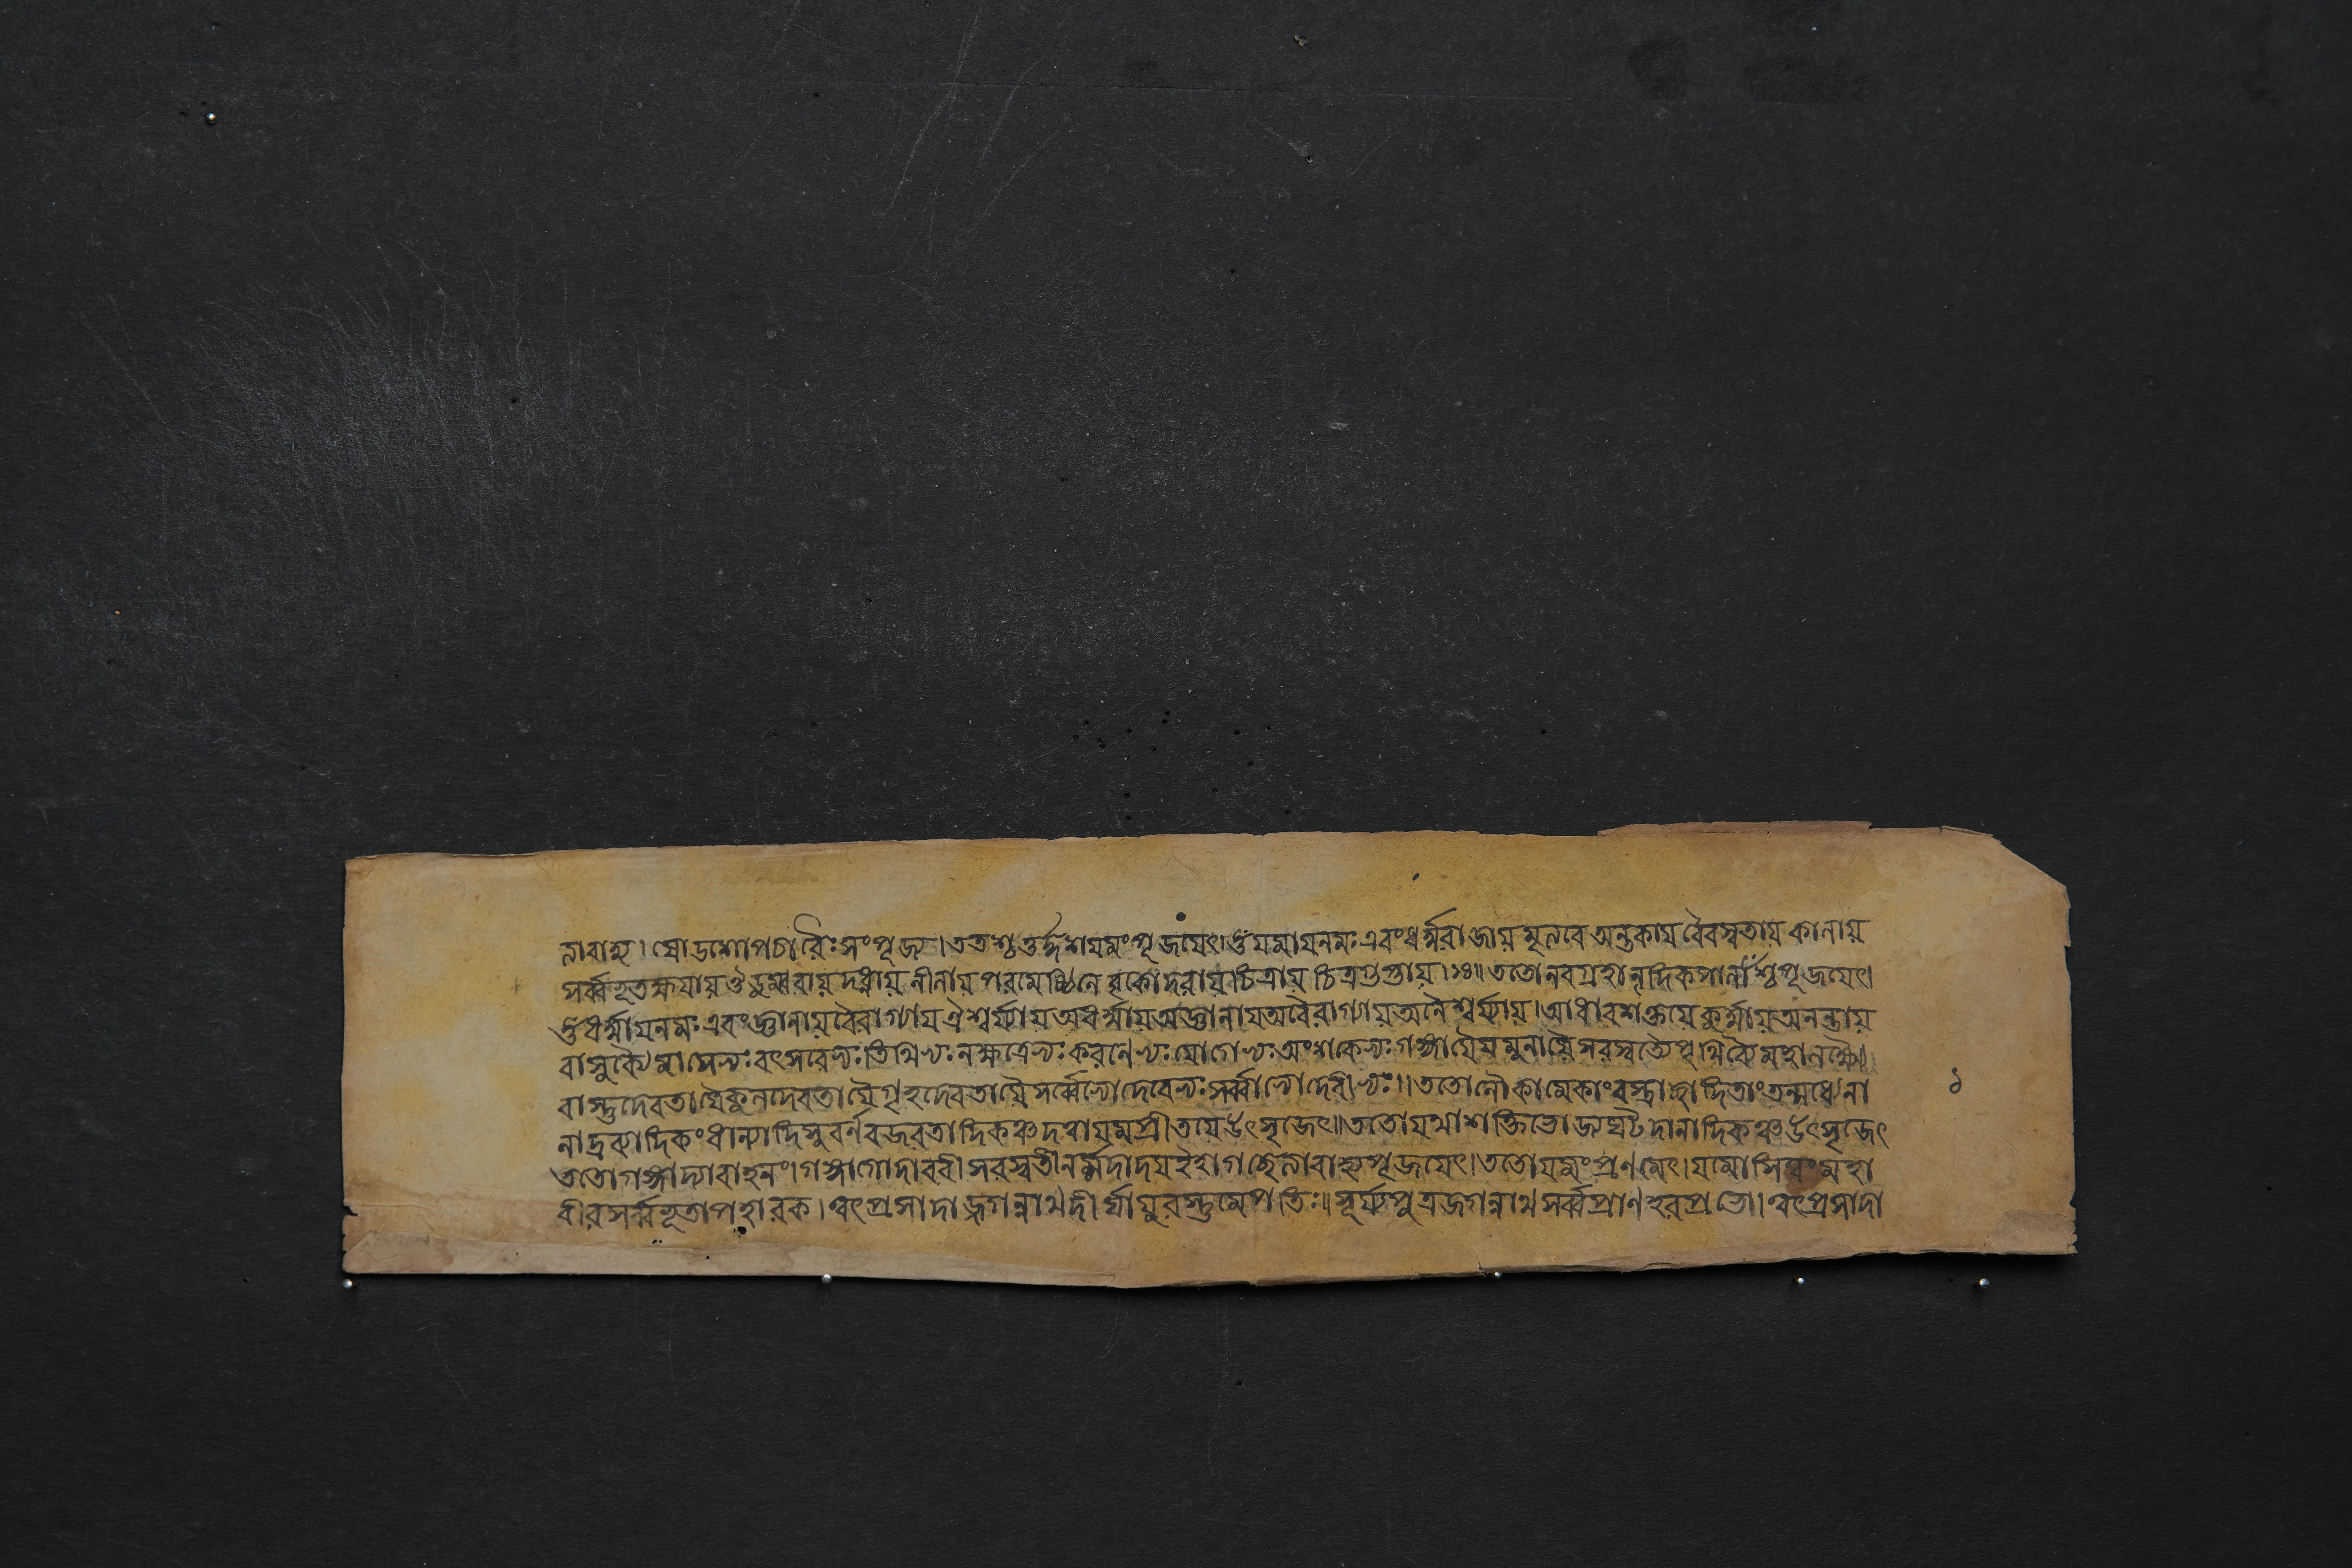 নাবাহ্য। ষোড়শোপচারৈঃ সংপূজ্য। তত্রশ্চতুর্দ্দশযমং পূজয়েৎ। ওঁ যমায়নমঃ এবংধর্ম্মরাজায় মৃত্যবে অন্তকায় বৈবস্বতায় কালায়
সর্ব্বভূতক্ষয়ায় ঔডুম্বরায় দধ্নায় নীলায় পরমেষ্ঠিনে বৃকোদরায় চিত্রায় চিত্রগুপ্তায়।১৪॥ ততোনবগ্রহান্ দিকপালাংশ্চ পূজয়েৎ।
ওঁ ধর্ম্মায়নমঃ এবং জ্ঞানায়বৈরাগ্যায়ঐশ্বর্য্যায়অধর্ম্মায়অজ্ঞানায়অবৈরাগ্যায়অনৈশ্বর্য্যায়। আধারশক্তয়ে কূর্ম্মায়অনন্তায়
বাসুকৈ্য মাসেভ্যঃ বৎসরেভ্যঃ তিথিভ্যঃ নক্ষত্রেভ্যঃ করণেভ্যঃ যোগেভ্যঃ অংশকেভ্যঃ গঙ্গায়ৈযমুনায়ৈসরস্বত্যৈপৃথিব্যৈ মহালক্ষ্মৈ্য
বাস্তুদেবতায়ৈকুলদেবতায়ৈগৃহদেবতায়ৈসর্ব্বেভ্যোদেবেভ্যঃ সর্ব্বাভ্যোদেবীভ্যঃ॥ ততোনৌকামেকাংবস্ত্রাচ্ছাদিতাং তন্মধ্যেনা
নাদ্রব্যাদিকং ধান্যাদিসুবর্ণরজরতাদিকঞ্চ দত্বা যমপ্রীতয়েউৎসৃজেৎ॥ ততোযথাশক্তিভোজ্যঘটদানাদিকঞ্চ উৎসৃজেৎ
ততোগঙ্গাদ্যাবাহনং। গঙ্গাগোদাবরী সরস্বতী নর্ম্মদাদয়ইহাগচ্ছেত্যাবাহ্যপূজয়েৎ। ততোযমং প্রণমেৎ। যমোসিত্বং মহা
বীরসর্ব্বভূতাপহারক। ত্বৎপ্রসাদাজ্জগন্নাথদীর্ঘায়ুরস্তুমেপতিঃ॥ সূর্য্যপুত্রজগন্নাথ সর্ব্বপ্রাণহরপ্রভো। ত্বৎপ্রসাদা
১